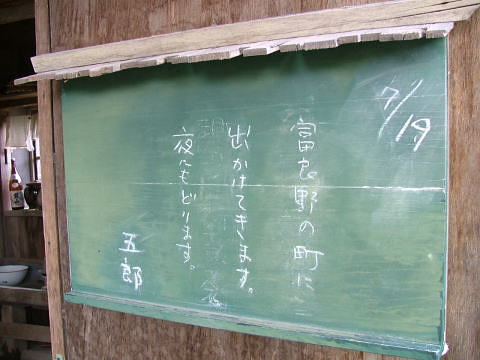 7/19
富良野の町に
出かけてきます。
夜にもどります。
五郎